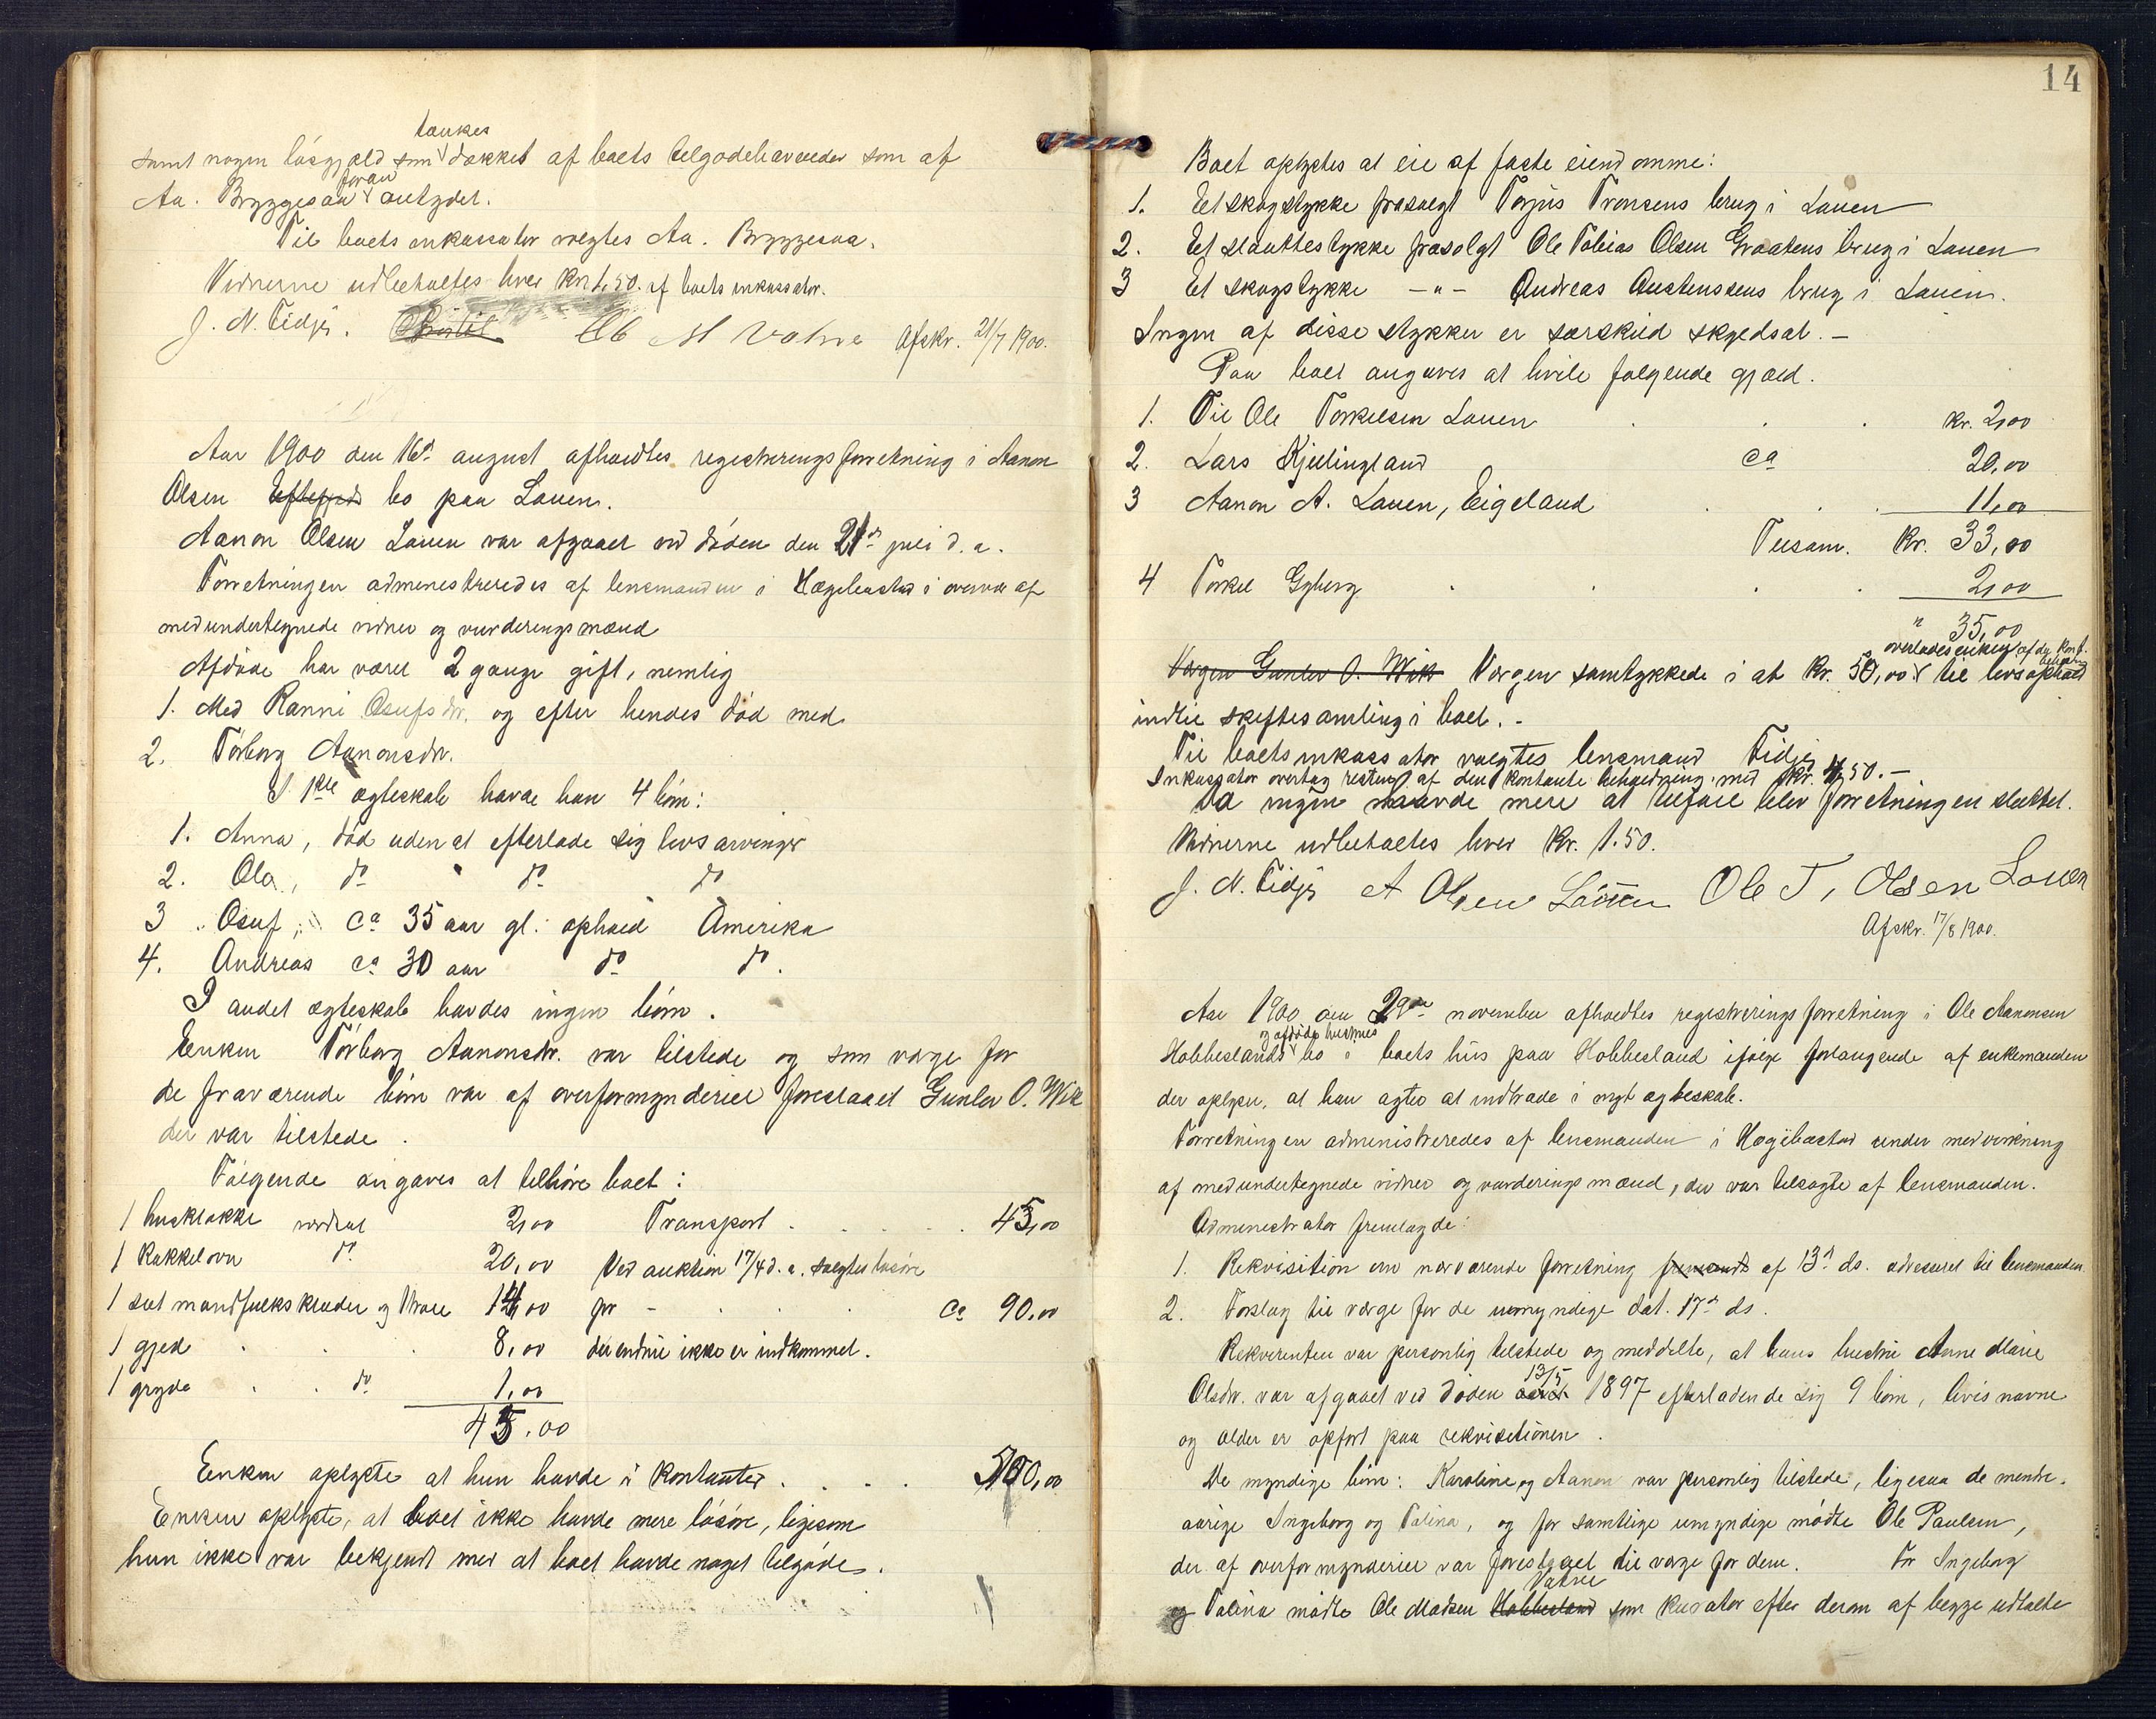 tænkes
samt nogen løsgjæld som dækket af boets tilgodehavender som af
foran
Aa. Bryggesaa antydet.
Til boets inkassator valgtes Aa. Bryggesaa.
Vidnerne udbetaltes hver kr. 1,50. af boets inkassator.
J. N. Tidjø. Ol M Vatne Afskr. 21/7 1900.
Aar 1900 den 16de august afholdtes registreringsforretning i Aanon
Olsen bo paa Lauen.
Aanon Olsen Lauen var afgaaet ved døden den 21de juli d. a.
Forretningen administreredes af lensmanden i Hægebostad i overvær af
medundertegnede vidner og vurderingsmænd
Afdøde har været 2 gange gift, nemlig
1. Med Ranni Osufsdr. og efter hendes død med
2. Torborg Aanonsdr.
I 1ste ægteskab havde han 4 børn:
1. Anna, død uden at efterlade sig livsarvinger
2. Ola, do do do
3. Osuf, ca 35 aar gl. ophold Amerika
4. Andreas ca 30 aar do do.
I andet ægteskab havdes ingen børn.
Enken Torborg Aanonsdr. var tilstede og som værge for
de fraværende børn var af overformynderiet foreslaaet Gunlev O. Wik
der var tilstede.
Følgende angaves at tilhøre boet:
1 husklokke værdsat 2,00 Transport . . . 45,00
1 Kakkelovn do 20,00 Ved auktion 17/4 d. a. solgtes løsøre
1 sæt mandfolksklæder og 14,00 for - ca 90,00
1 gjed 8,00 der endnu ikke er indkommet.
1 gryde do 1,00
45,00
Enken oplyste at hun havde i kontanter . . . 100,00
Enken oplyste, at boet ikke havde mere løsøre, ligesom
hun ikke var bekjendt med at boet havde noget tilgode.
14
Boet oplystes at eie af faste eiendomme:
1. Et skogstykke frasolgt Torjus Tronsens brug i Lauen
2. Et slaattestykke frasolgt Ole Tobias Olsen Graatens brug i Lauen
3 Et skogstykke -"- Andreas Austensens brug i Lauen.
Ingen af disse stykker er særskild skyldsat. -
Paa boet angaves at hvile følgende gjæld.
1. Til Ole Torkelsen Lauen . . . kr. 2,00
2. Lars Kjellingland ca 20,00
3 Aanon A. Lauen, Eigeland . . . 11,00
Tilsam. Kr. 33,00
4 Torkel Gyberg . . . 2,00
" 35,00
overlades enken af de kont.
Værgen Gunlev O. Wik Værgen samtykkede i at kr. 50,00 til livsophold
indtil skiftesamling i boet. -
Til boets inkassator valgtes lensmand Tidjø
Inkassator overtog resten af den kontante beholdning med kr. 50. -
Da ingen havde mere at tilføie blev forretningen sluttet.
Vidnerne udbetaltes hver Kr. 1.50.
J. N. Tidjø A Olsen Lauen Ole T, Olsen Louen
Afskr. 17/8 1900.
Aar 1900 den 29de november afholdtes registreringsforretning i Ole Aanonsen
og afdøde hustrues
Hobbeslands bo i boets hus paa Hobbesland ifølge forlangende af enkemanden
der oplyser, at han agter at indtræde i nyt ægteskab.
Forretningen administreredes af lensmanden i Hægebostad under medvirkning
af medundertegnede vidner og vurderingsmænd, der var tilsagte af lensmanden.
Administrator fremlagde:
1. Rekvisition om nærværende forretning af 13de ds. adresseret til lensmanden.
2. Forslag til værge for de umyndige dat. 17de ds.
Rekvirenten var personlig tilstede og meddelte, at hans hustru Anne Marie
13/5
Olsdr. var afgaaet ved døden 1897 efterladende sig 9 børn, hvis navne
og alder er opført paa rekvisitionen.
De myndige børn: Karoline og Aanon var personlig tilstede, ligesaa de mindre-
aarige Ingeborg og Talina, og for samtlige umyndige mødte Ole Paulsen,
der af overformynderiet var foreslaaet til værge for dem. For Ingeborg
Vatne
og Talina mødte Ole Madsen Hobbesland som kurator efter deran af begge udtalte